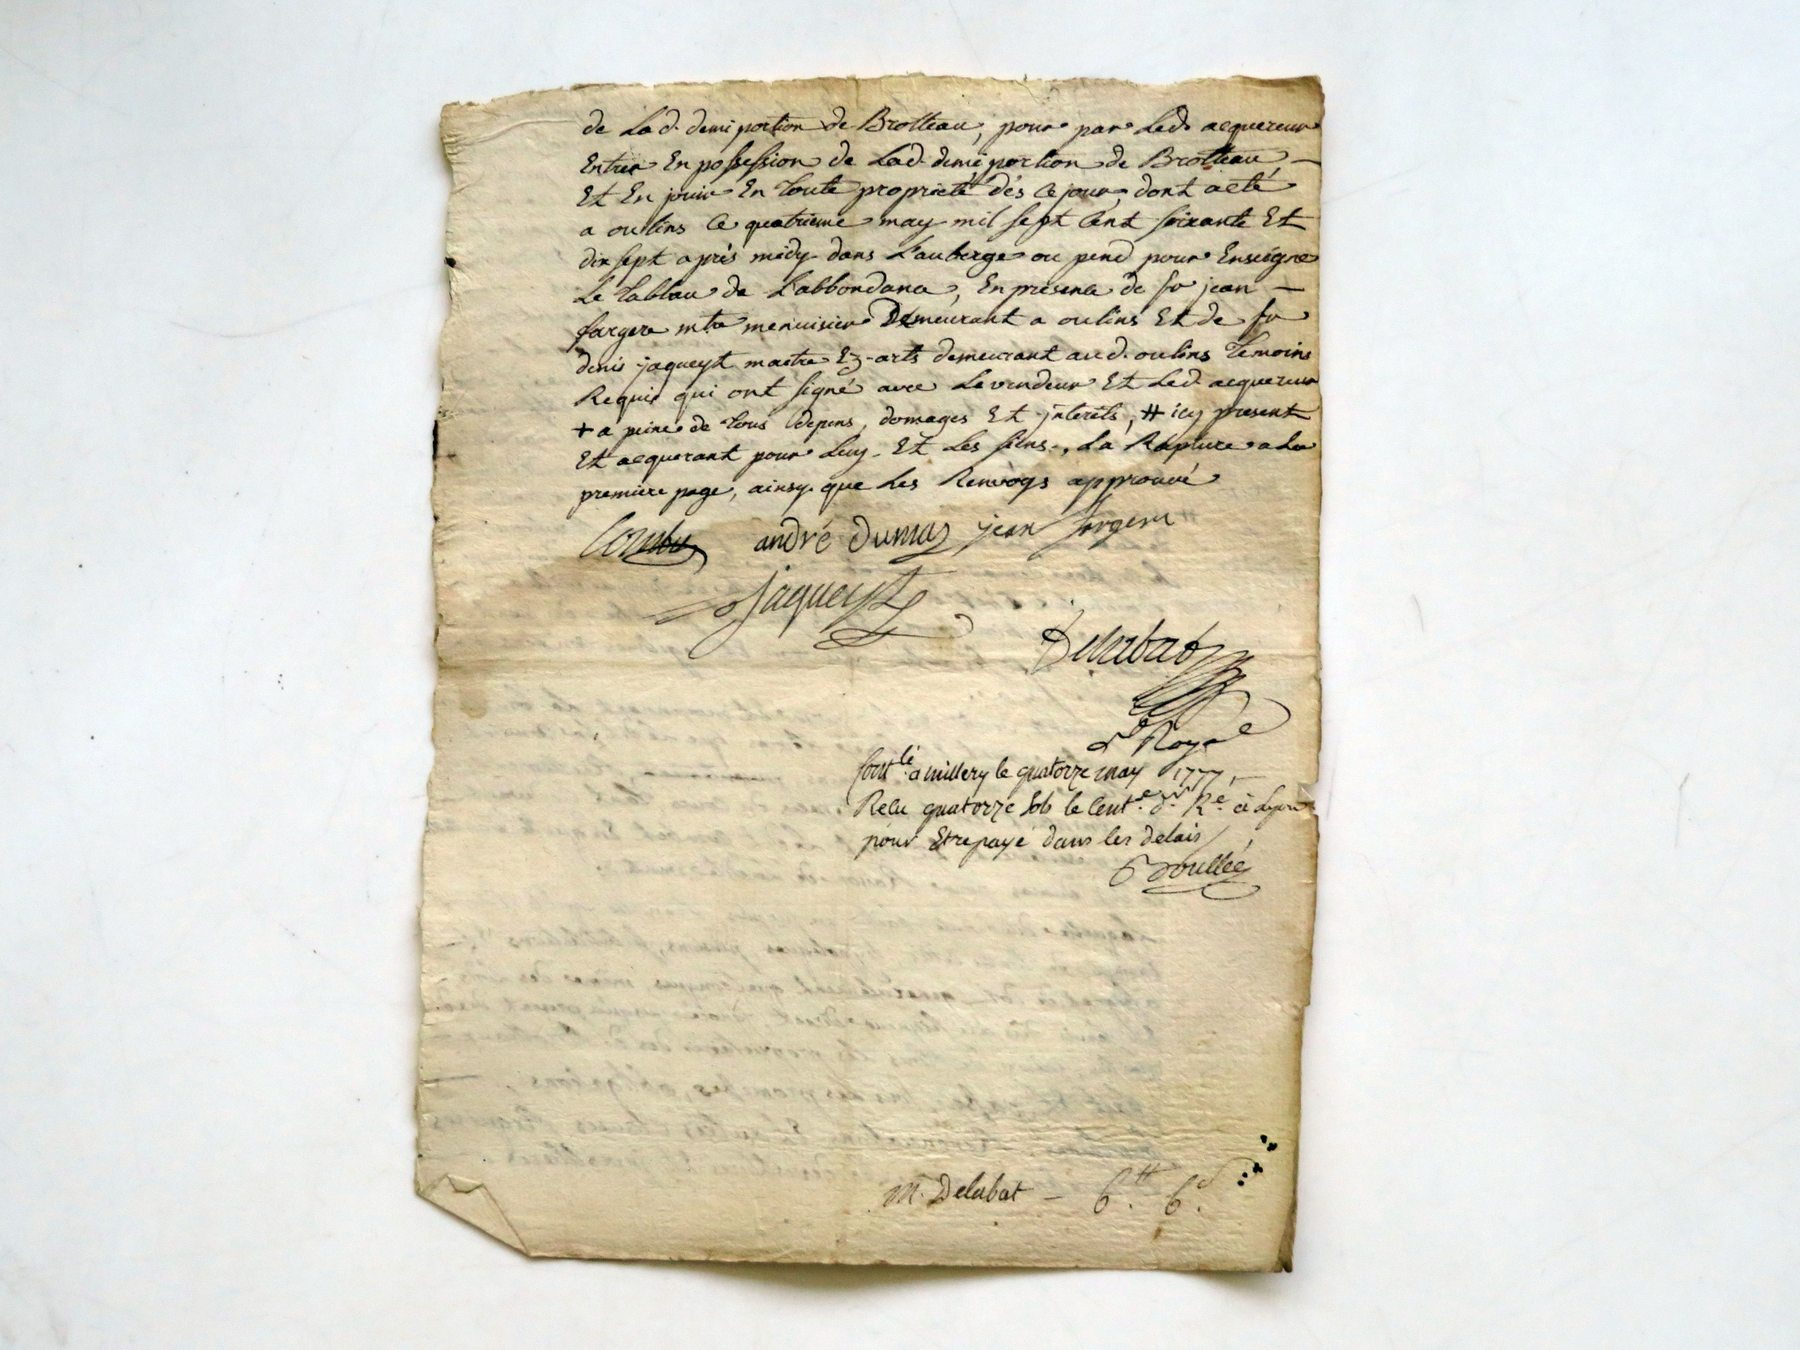 de Lad. demi portion de Brotteau, pour par Led. acquereur
Entrer En possession de Lad. demi portion de Brotteau —
Et En jouir En toute proprieté dès ce jour, dont acte
a oulins ce quatrieme may mil sept cent soixante Et
dix sept après midy dans L'auberge ou pend pour Enseigne
Le tablau de L'abbondance, En presence de sr jean —
fargere mtre menuisier Demeurant a oulins Et de sr
denis jaqueyt maitre Ez-arts demeurant aud. oulins temoins
Requis qui ont signé avec Le vendeur Et Led. acquereur
+ a peine de tous depens, domages Et interets, # icy present
Et acquerant pour Luy Et Les siens, La Rapture a La
premiere page, ainsy que Les Renvoys approuvé
andré dumas jean fargere
jaqueyt
Delabat
Nre Royal
Contlé a millery le quatorze may 1777, —
Relu quatorze sols le cent. dr Ré à Lyon
pour Etre payé dans les delais
Boullée
M. Delabat — 6tt. 6d